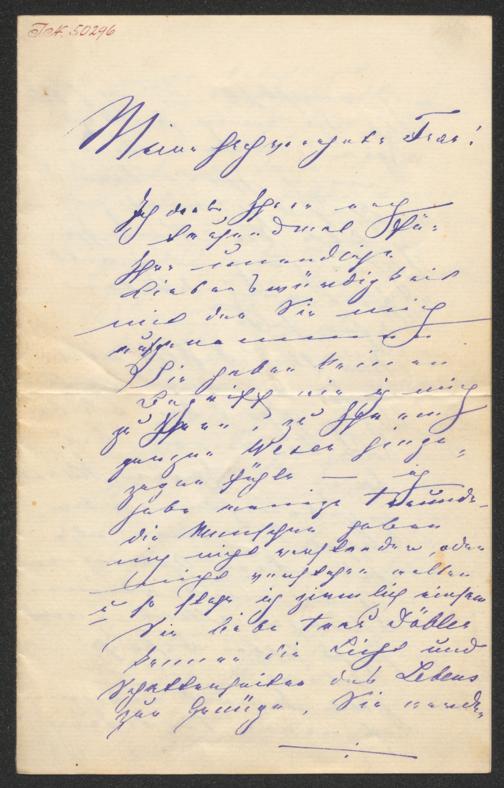 I.N. 50296
Meine hochverehrte Frau!
Ich danke Ihnen noch
tausendmal für
Ihre unendliche
Liebenswürdigkeit
mit der Sie mich
aufgenommen.
Sie haben keinen
Begriff wie ich mich
zu Ihnen, zu Ihrem
ganzen Wesen hinge-
zogen fühle — ich
habe wenige Freunde
die Menschen haben
mich nicht verstanden, oder
nicht verstehen wollen
u so stehe ich ziemlich einsam
Sie liebe Frau Döbler
kennen die Licht und
Schattenseiten des Lebens
zur Genüge, Sie